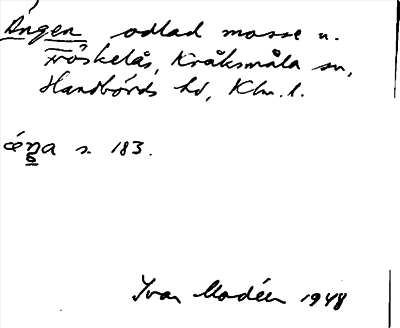 Ängen odlad mosse u.
Fröskelås, Kråksmåla sn,
Handbörds hd, Klm. l.
s. 183.
Ivar Modéer 1948